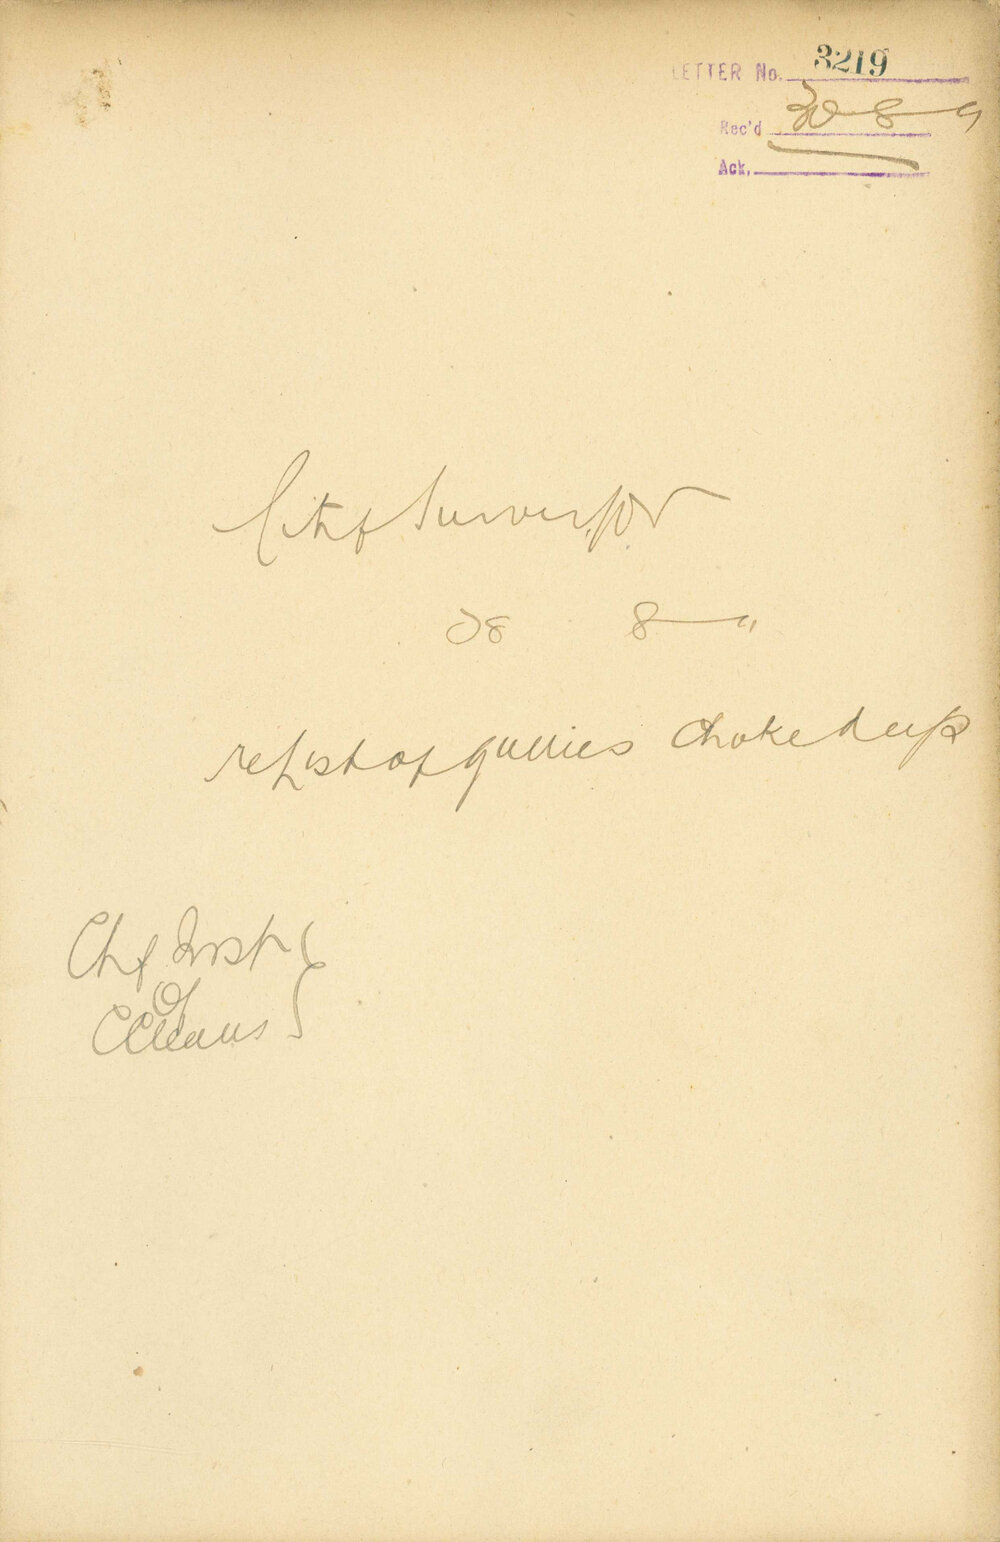 LETTER No. 3219
Rec'd 30 8 11
Ack.
City Surveyor
28 8 11
re list of gullies choked up
Chf Inspr
of
Cleans